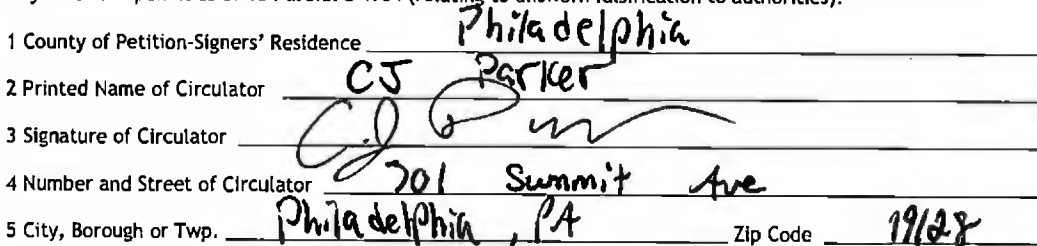 1 County of Petition-Signers' Residence Philadelphia
2 Printed Name of Circulator CJ Parker
3 Signature of Circulator
4 Number and Street of Circulator 701 Summit Ave
5 City, Borough or Twp. Philadelphia, PA Zip Code 19128